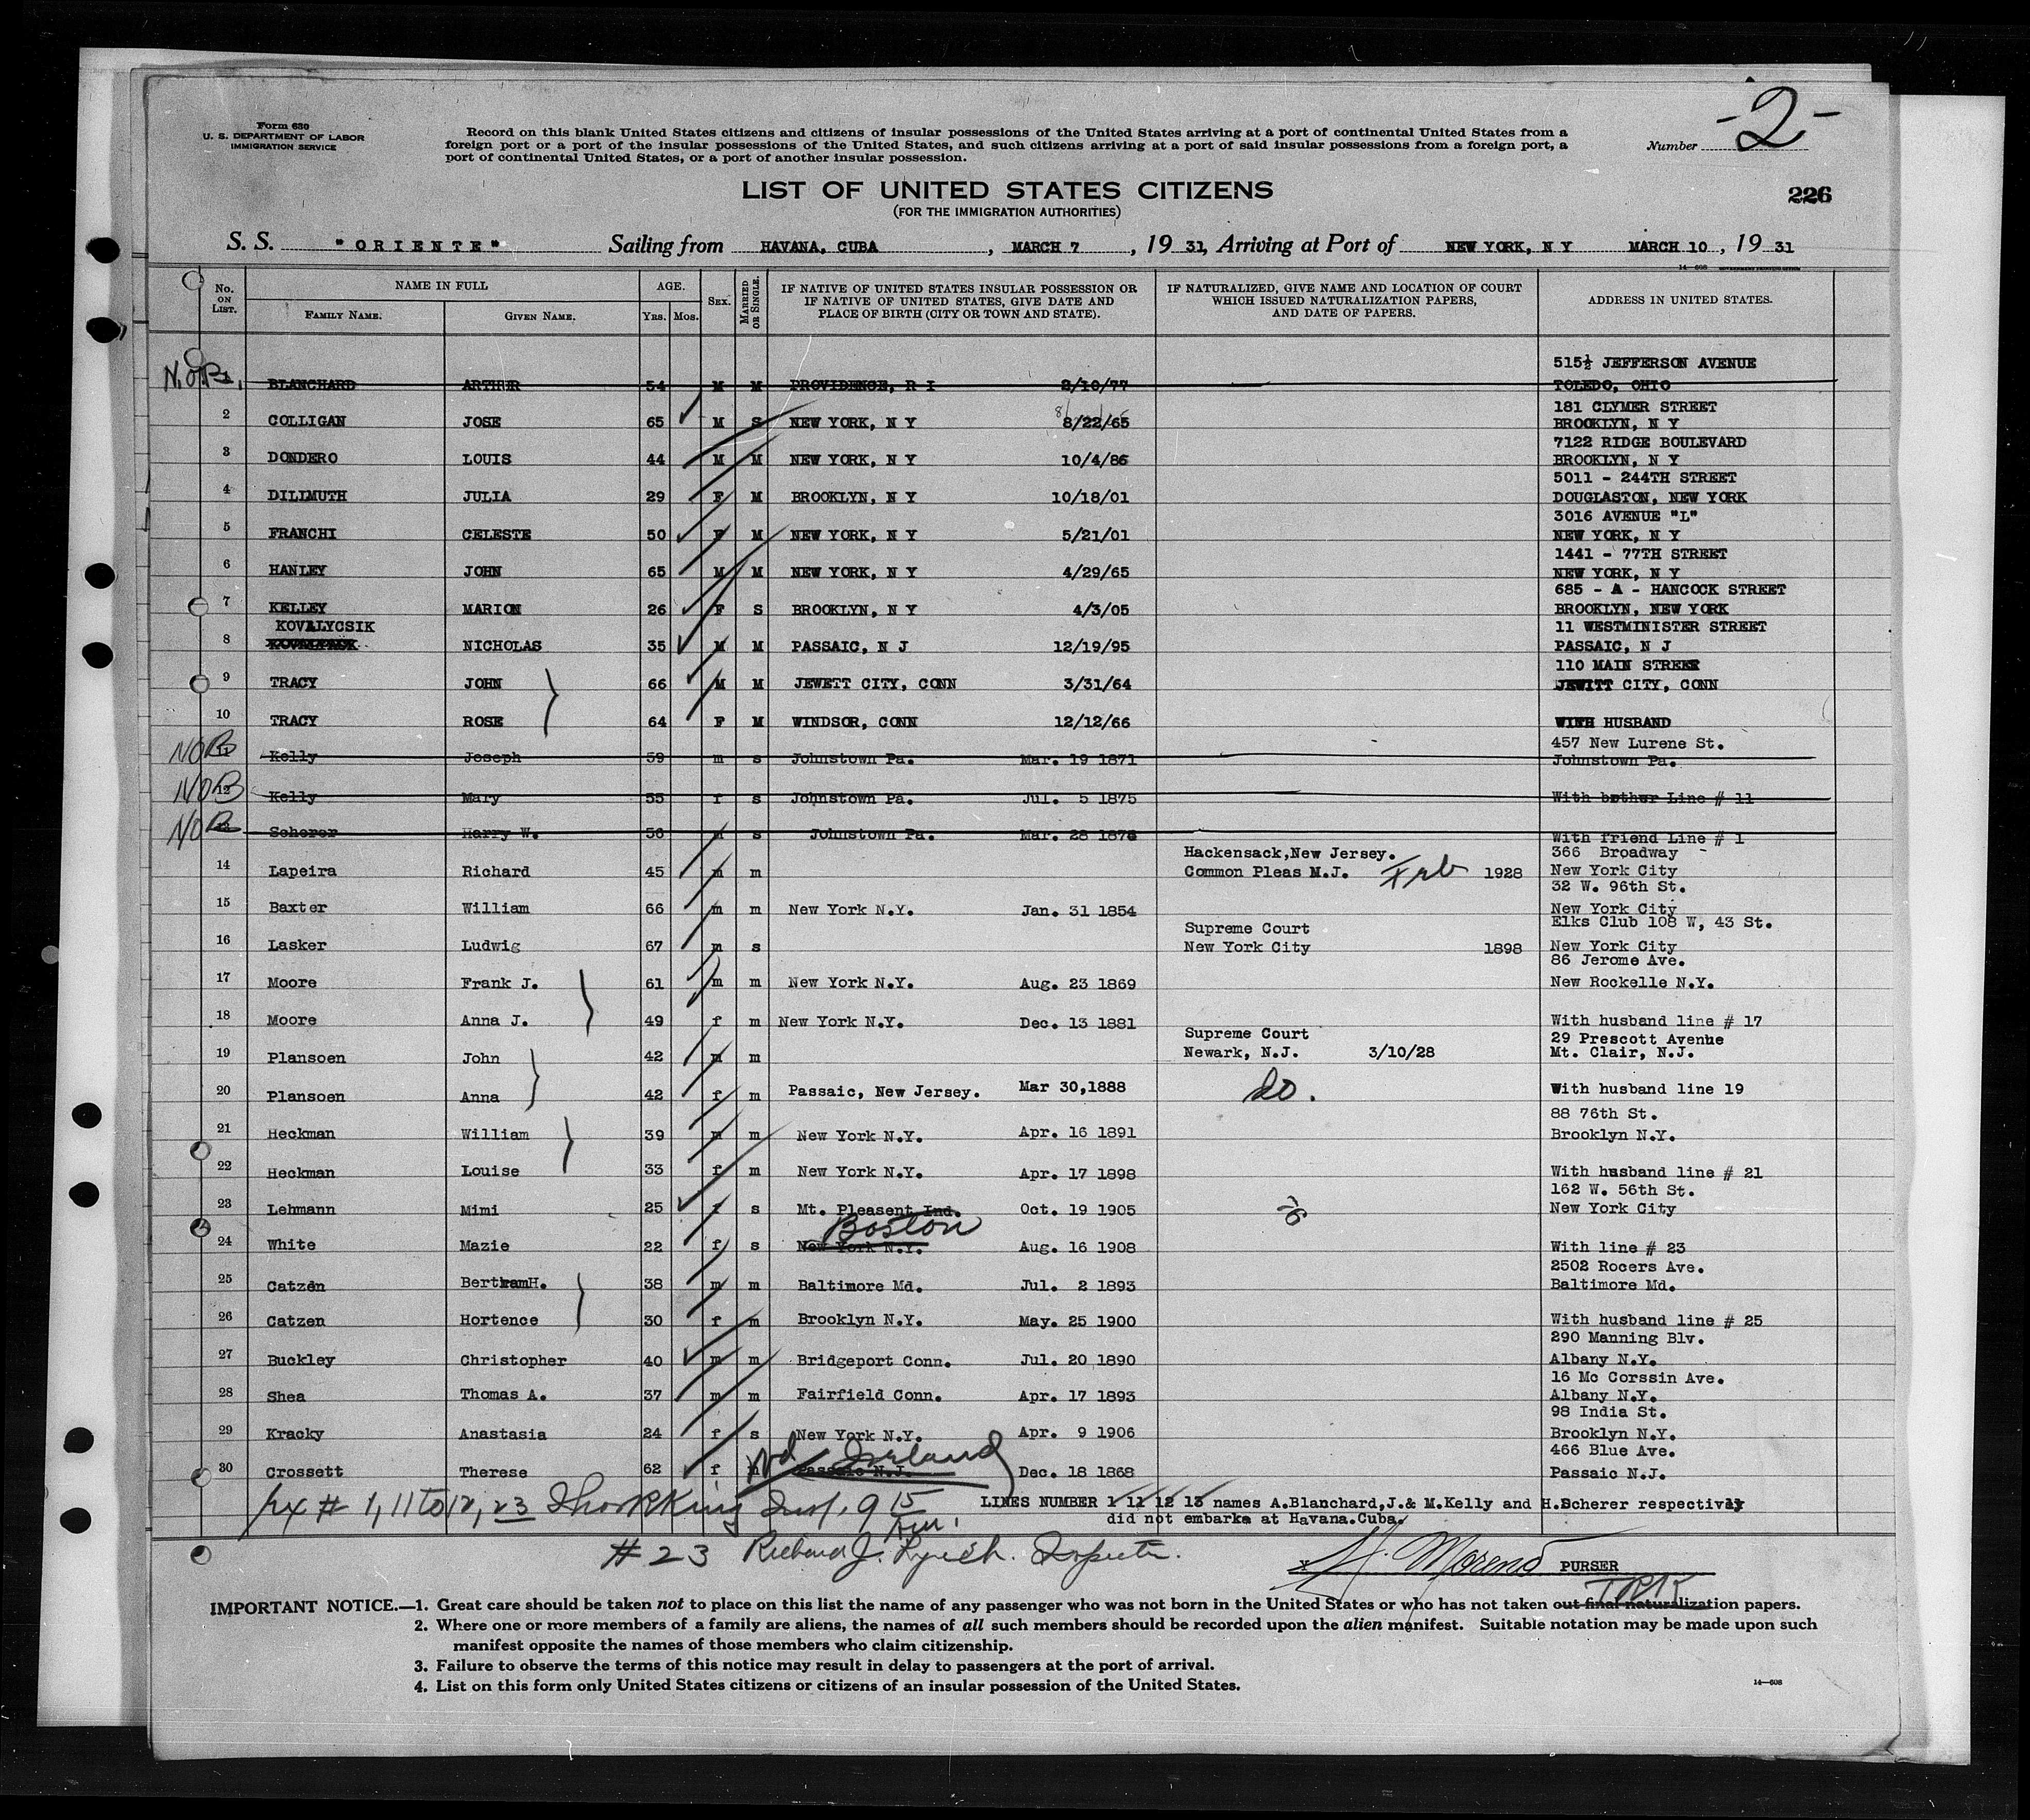 Form 630
U. S. DEPARTMENT OF LABOR
IMMIGRATION SERVICE
Record on this blank United States citizens and citizens of insular possessions of the United States arriving at a port of continental United States from a
foreign port or a port of the insular possessions of the United States, and such citizens arriving at a port of said insular possessions from a foreign port, a
port of continental United States, or a port of another insular possession.
Number -2-
LIST OF UNITED STATES CITIZENS
(FOR THE IMMIGRATION AUTHORITIES)
226
S. S. "ORIENTE" Sailing from HAVANA, CUBA, MARCH 7, 19 31, Arriving at Port of NEW YORK, N Y MARCH 10, 19 31
14—608 GOVERNMENT PRINTING OFFICE
No. ON LIST. NAME IN FULL FAMILY NAME. GIVEN NAME. AGE. YRS. MOS. SEX. MARRIED OR SINGLE. IF NATIVE OF UNITED STATES INSULAR POSSESSION OR IF NATIVE OF UNITED STATES, GIVE DATE AND PLACE OF BIRTH (CITY OR TOWN AND STATE). IF NATURALIZED, GIVE NAME AND LOCATION OF COURT WHICH ISSUED NATURALIZATION PAPERS, AND DATE OF PAPERS. ADDRESS IN UNITED STATES.
515½ JEFFERSON AVENUE
N.O.B. 1 BLANCHARD ARTHUR 54 M M PROVIDENCE, R I 2/10/77 TOLEDO, OHIO
181 CLYMER STREET
2 COLLIGAN JOSE 65 M S NEW YORK, N Y 8/22/65 BROOKLYN, N Y
7122 RIDGE BOULEVARD
3 DONDERO LOUIS 44 M M NEW YORK, N Y 10/4/86 BROOKLYN, N Y
5011 - 244TH STREET
4 DILLMUTH JULIA 29 F M BROOKLYN, N Y 10/18/01 DOUGLASTON, NEW YORK
3016 AVENUE "L"
5 FRANCHI CELESTE 50 F M NEW YORK, N Y 5/21/01 NEW YORK, N Y
1441 - 77TH STREET
6 HANLEY JOHN 65 M M NEW YORK, N Y 4/29/65 NEW YORK, N Y
685 - A - HANCOCK STREET
7 KELLEY MARION 26 F S BROOKLYN, N Y 4/3/05 BROOKLYN, NEW YORK
KOVALYCSIK 11 WESTMINISTER STREET
8 NICHOLAS 35 M M PASSAIC, N J 12/19/95 PASSAIC, N J
110 MAIN STREET
9 TRACY JOHN 66 M M JEWETT CITY, CONN 3/31/64 JEWITT CITY, CONN
10 TRACY ROSE 64 F M WINDSOR, CONN 12/12/66 WITH HUSBAND
457 New Lurene St.
NOB 11 Kelly Joseph 59 m s Johnstown Pa. Mar. 19 1871 Johnstown Pa.
NOB 12 Kelly Mary 55 f s Johnstown Pa. Jul. 5 1875 With bother Line # 11
NOB 13 Scherer Harry W. 56 m s Johnstown Pa. Mar. 28 1874 With friend Line # 1
Hackensack,New Jersey. 366 Broadway
14 Lapeira Richard 45 m m Common Pleas N.J. Feb 1928 New York City
32 W. 96th St.
15 Baxter William 66 m m New York N.Y. Jan. 31 1854 New York City
Supreme Court Elks Club 108 W, 43 St.
16 Lasker Ludwig 67 m s New York City 1898 New York City
86 Jerome Ave.
17 Moore Frank J. 61 m m New York N.Y. Aug. 23 1869 New Rockelle N.Y.
18 Moore Anna J. 49 f m New York N.Y. Dec. 13 1881 With husband line # 17
Supreme Court 29 Prescott Avenue
19 Plansoen John 42 m m Newark, N.J. 3/10/28 Mt. Clair, N.J.
20 Plansoen Anna 42 f m Passaic, New Jersey. Mar 30,1888 do. With husband line 19
88 76th St.
21 Heckman William 39 m m New York N.Y. Apr. 16 1891 Brooklyn N.Y.
22 Heckman Louise 33 f m New York N.Y. Apr. 17 1898 With husband line # 21
162 W. 56th St.
23 Lehmann Mimi 25 f s Mt. Pleasent Ind. Oct. 19 1905 New York City
Boston
24 White Mazie 22 f s New York N.Y. Aug. 16 1908 With line # 23
2502 Rocers Ave.
25 Catzen Bertram H. 38 m m Baltimore Md. Jul. 2 1893 Baltimore Md.
26 Catzen Hortence 30 f m Brooklyn N.Y. May. 25 1900 With husband line # 25
290 Manning Blv.
27 Buckley Christopher 40 m m Bridgeport Conn. Jul. 20 1890 Albany N.Y.
16 Mc Corssin Ave.
28 Shea Thomas A. 37 m m Fairfield Conn. Apr. 17 1893 Albany N.Y.
98 India St.
29 Kracky Anastasia 24 f s New York N.Y. Apr. 9 1906 Brooklyn N.Y.
Ireland 466 Blue Ave.
30 Crossett Therese 62 f Passaic N.J. Dec. 18 1868 Passaic N.J.
# 1, 11 to 12, 23 Insp. 9 15 AM. LINES NUMBER 1 11 12 13 names A.Blanchard,J.& M.Kelly and H.Scherer respectively
did not embarke at Havana.Cuba.
# 23 Richard J. Lynch. Inspector.
x H. Moreno PURSER
IMPORTANT NOTICE.—1. Great care should be taken not to place on this list the name of any passenger who was not born in the United States or who has not taken out final naturalization papers.
2. Where one or more members of a family are aliens, the names of all such members should be recorded upon the alien manifest. Suitable notation may be made upon such
manifest opposite the names of those members who claim citizenship.
3. Failure to observe the terms of this notice may result in delay to passengers at the port of arrival.
4. List on this form only United States citizens or citizens of an insular possession of the United States.
14—608